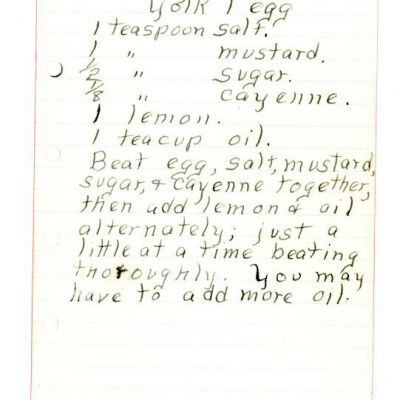 Yolk 1 egg
1 teaspoon salt.
1 " mustard.
1/2 " sugar.
1/8 " cayenne.
1 lemon.
1 teacup oil.
Beat egg, salt, mustard,
sugar, & cayenne together,
then add lemon & oil
alternately; just a
little at a time beating
thoroughly. You may
have to add more oil.